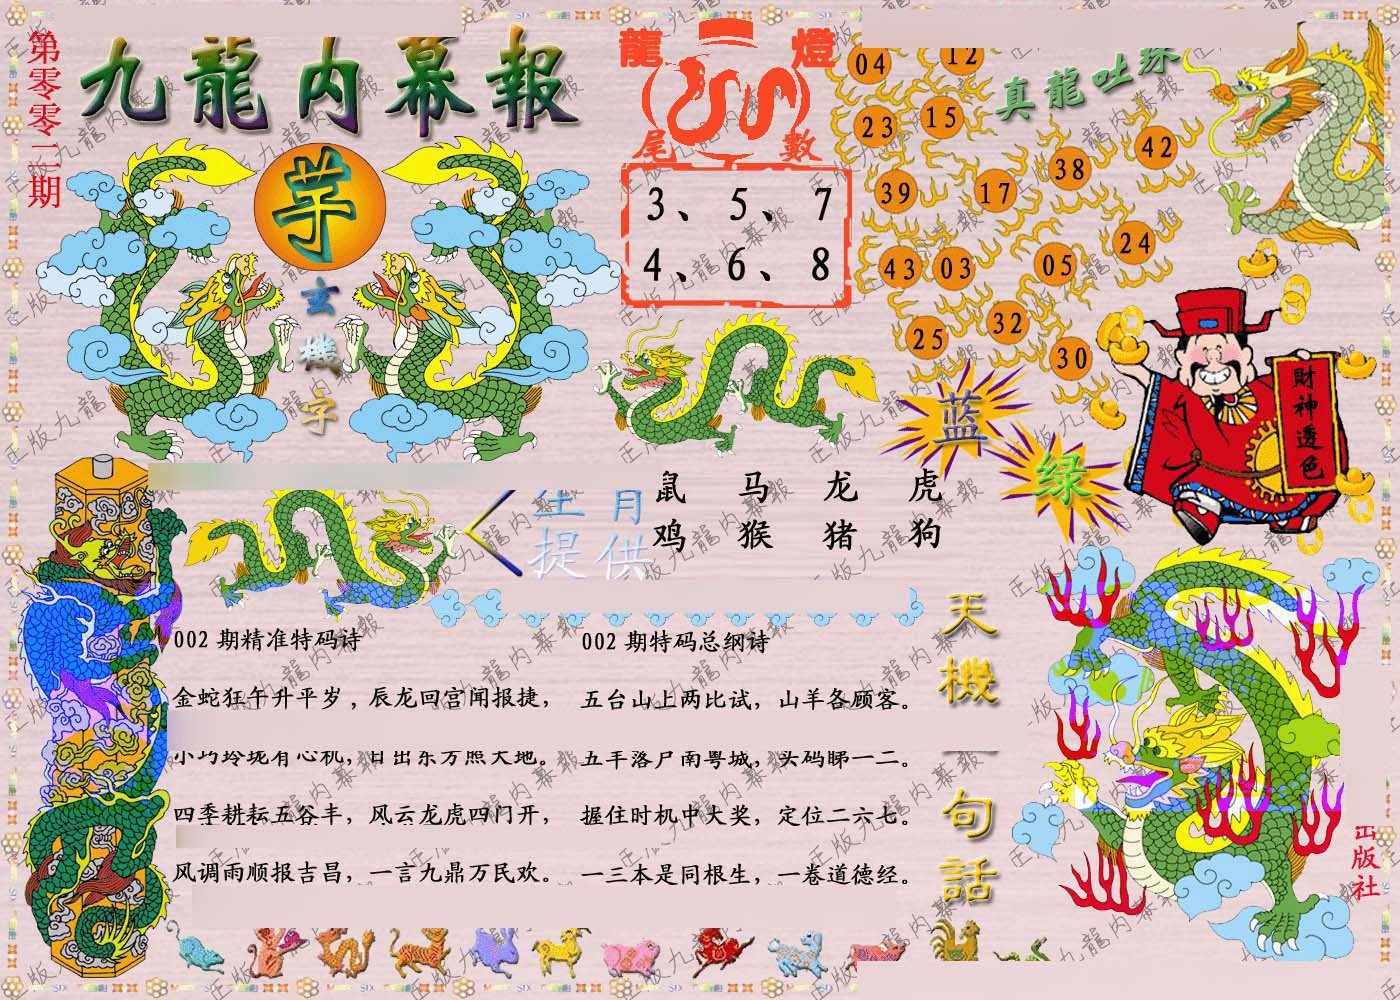 第零零二期
九龍內幕報
芋
玄機字
龍燈
尾數
3、5、7
4、6、8
真龍吐珠
04 12
23 15
39 17 38 42
43 03 05 24
25 32 30
蓝
绿
財神透色
提供
鼠 马 龙 虎
鸡 猴 猪 狗
002 期精准特码诗
金蛇狂午升平岁，辰龙回宫闻报捷，
小巧玲珑有心机，日出东方照大地。
四季耕耘五谷丰，风云龙虎四门开，
风调雨顺报吉昌，一言九鼎万民欢。
002 期特码总纲诗
五台山上两比试，山羊各顾客。
五羊落户南粤城，头码睇一二。
握住时机中大奖，定位二六七。
一三本是同根生，一卷道德经。
天機一句話
版社
正版九龍內幕報